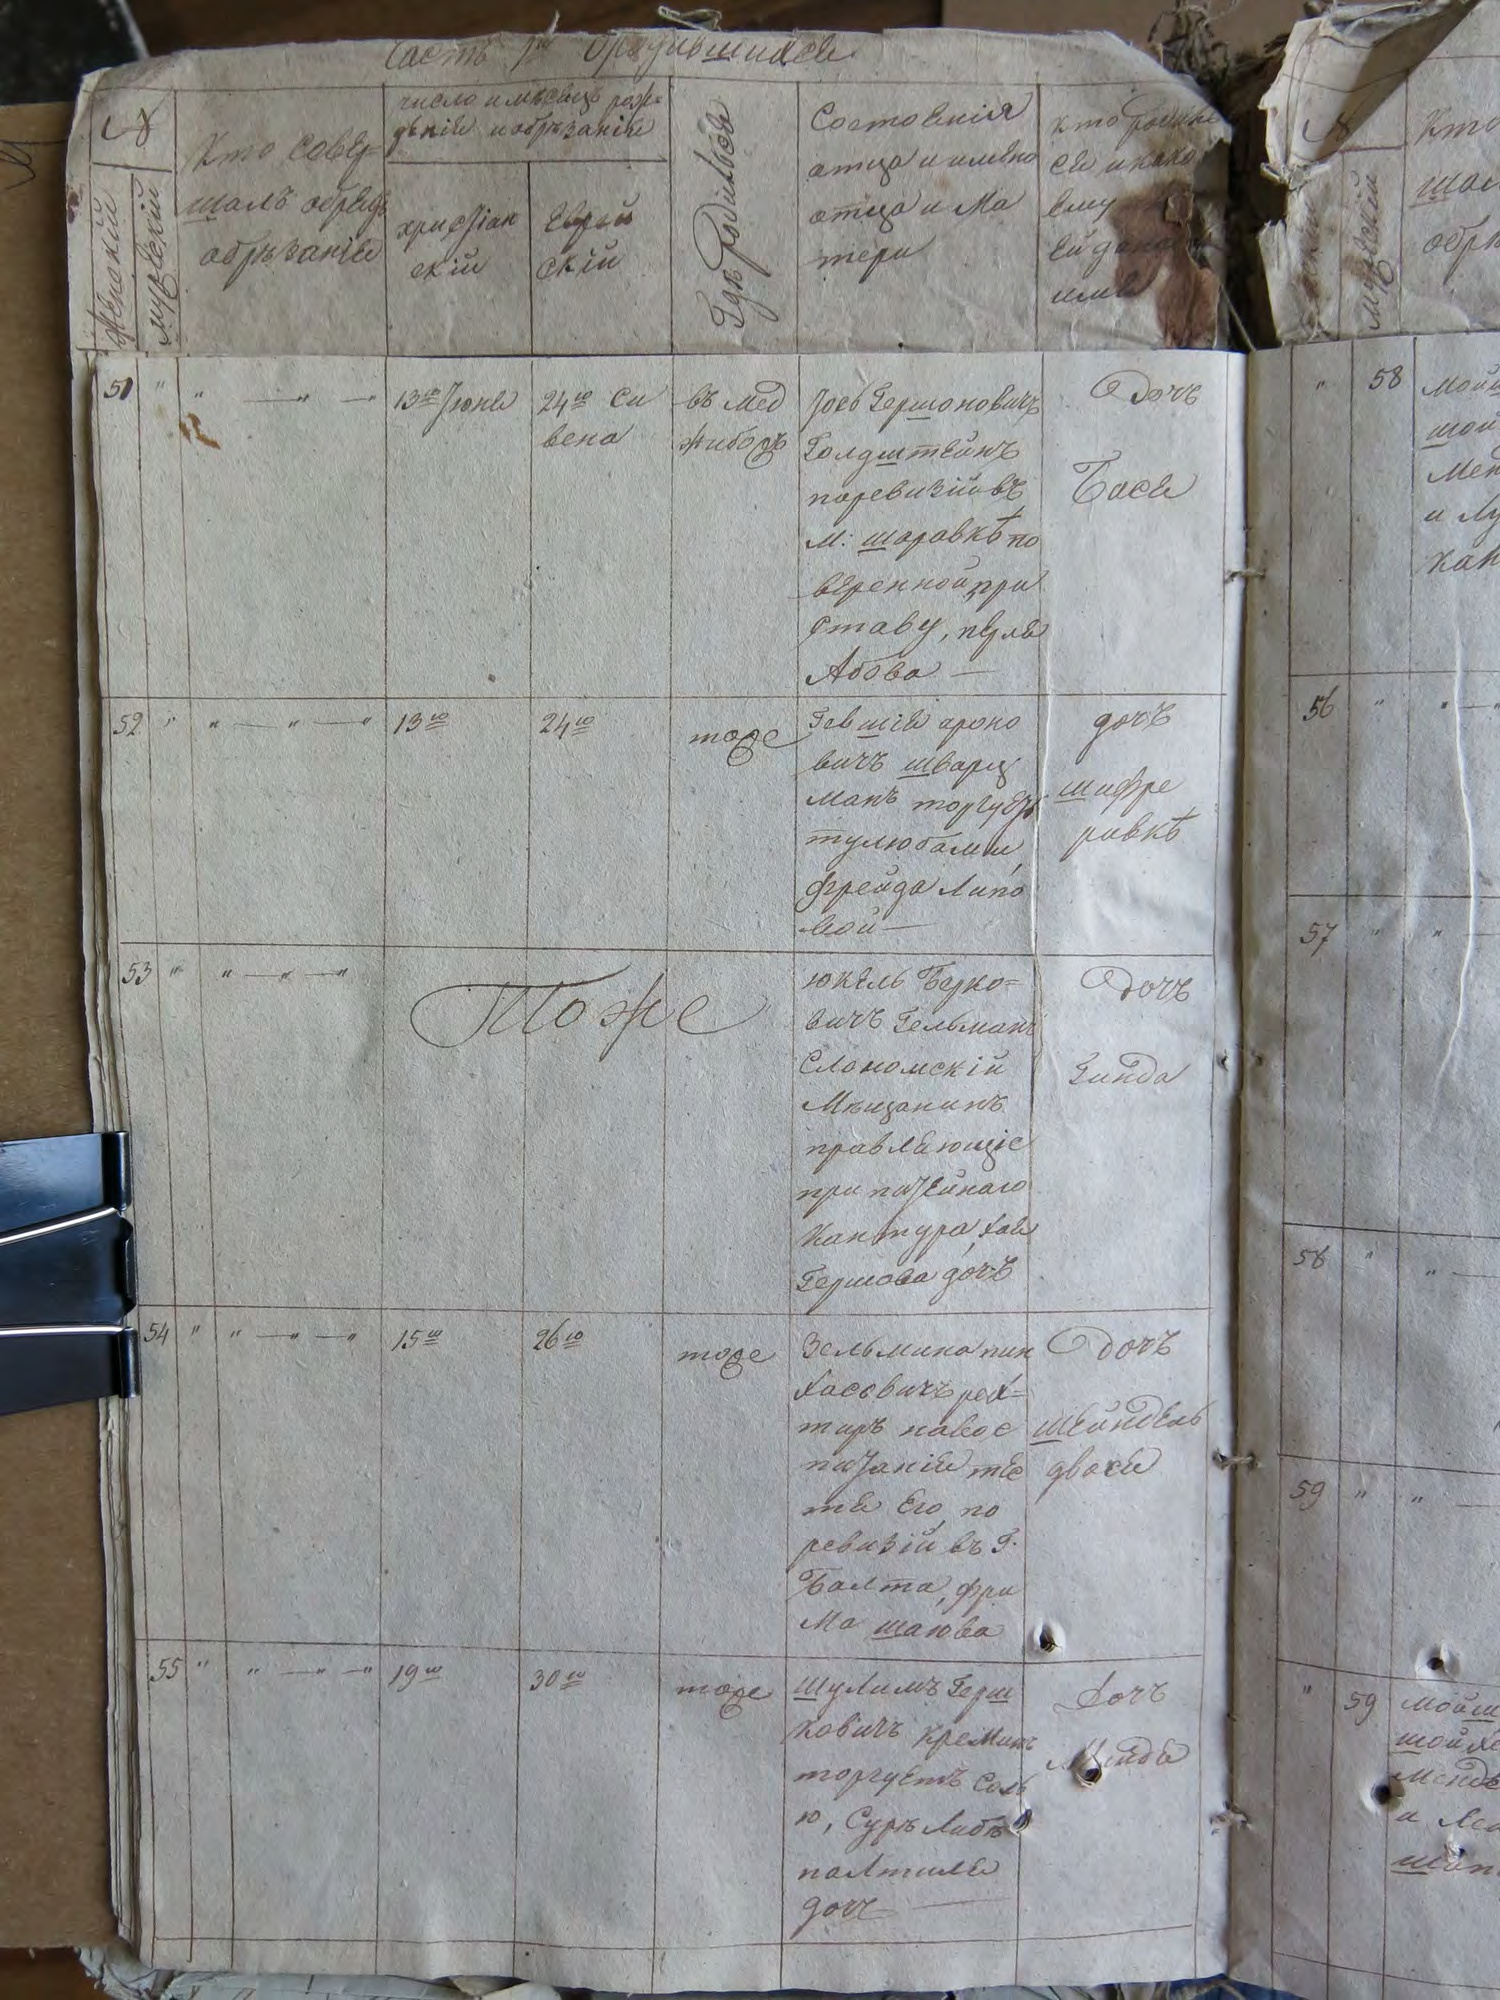 Часть 1я О родившихся
№
Женский
мужеский
Кто совер-
шалъ обрядъ
обрѣзанія
число и мѣсяцъ рож-
дѣнія и обрѣзанія
христіан
скій
Еврей
скій
Гдѣ родился
Состоянія
отца и имѣна
отца и Ма
тери
кто родил
ся и како
ему
ей дано
имя
51 " " — " — 13го Іюня
24го Си
вена
въ Мед
жибожъ
Іосъ Гершоновичъ
Голдштейнъ
поревизіи въ
М: шаравкѣ по
веренной при
ставу, перля
Абова —
Дочь
Бася
52 " " — " — " 13го 24го тоже
Гевшія ароно
вичъ шварц
манъ торгуетъ
тулюбами,
фрейда Липо
вой —
дочь
шифре
ривкѣ
53 " " — " — " Тоже
юкель Берко=
вичъ Гельманъ
Слономскій
Мѣщанинъ
правляющіе
при питейнаго
Кантура, хая
Гершова дочь
Дочь
Зинда
54 " " — " — " 15го 26го тоже
Зельмина пин
хасовичъ рех=
тиръ навос
питаніи тес
тя Его, по
ревизіи въ Г.
Балта, фри
Ма шаюва
Дочь
шейндель
двося
55 " " — " — " 19го 30го тоже
Шулимъ Герш
ковичъ кременъ
торгуетъ Соль
ю, Суръ Либѣ
палтиля
дочь —
Дочь
" 58 Мойш
шой
Мен
и Лу
хак
56 " " —
57 " " —
58 " " —
59 " " —
" 59 Мойш
шойхе
Менде
и Ле